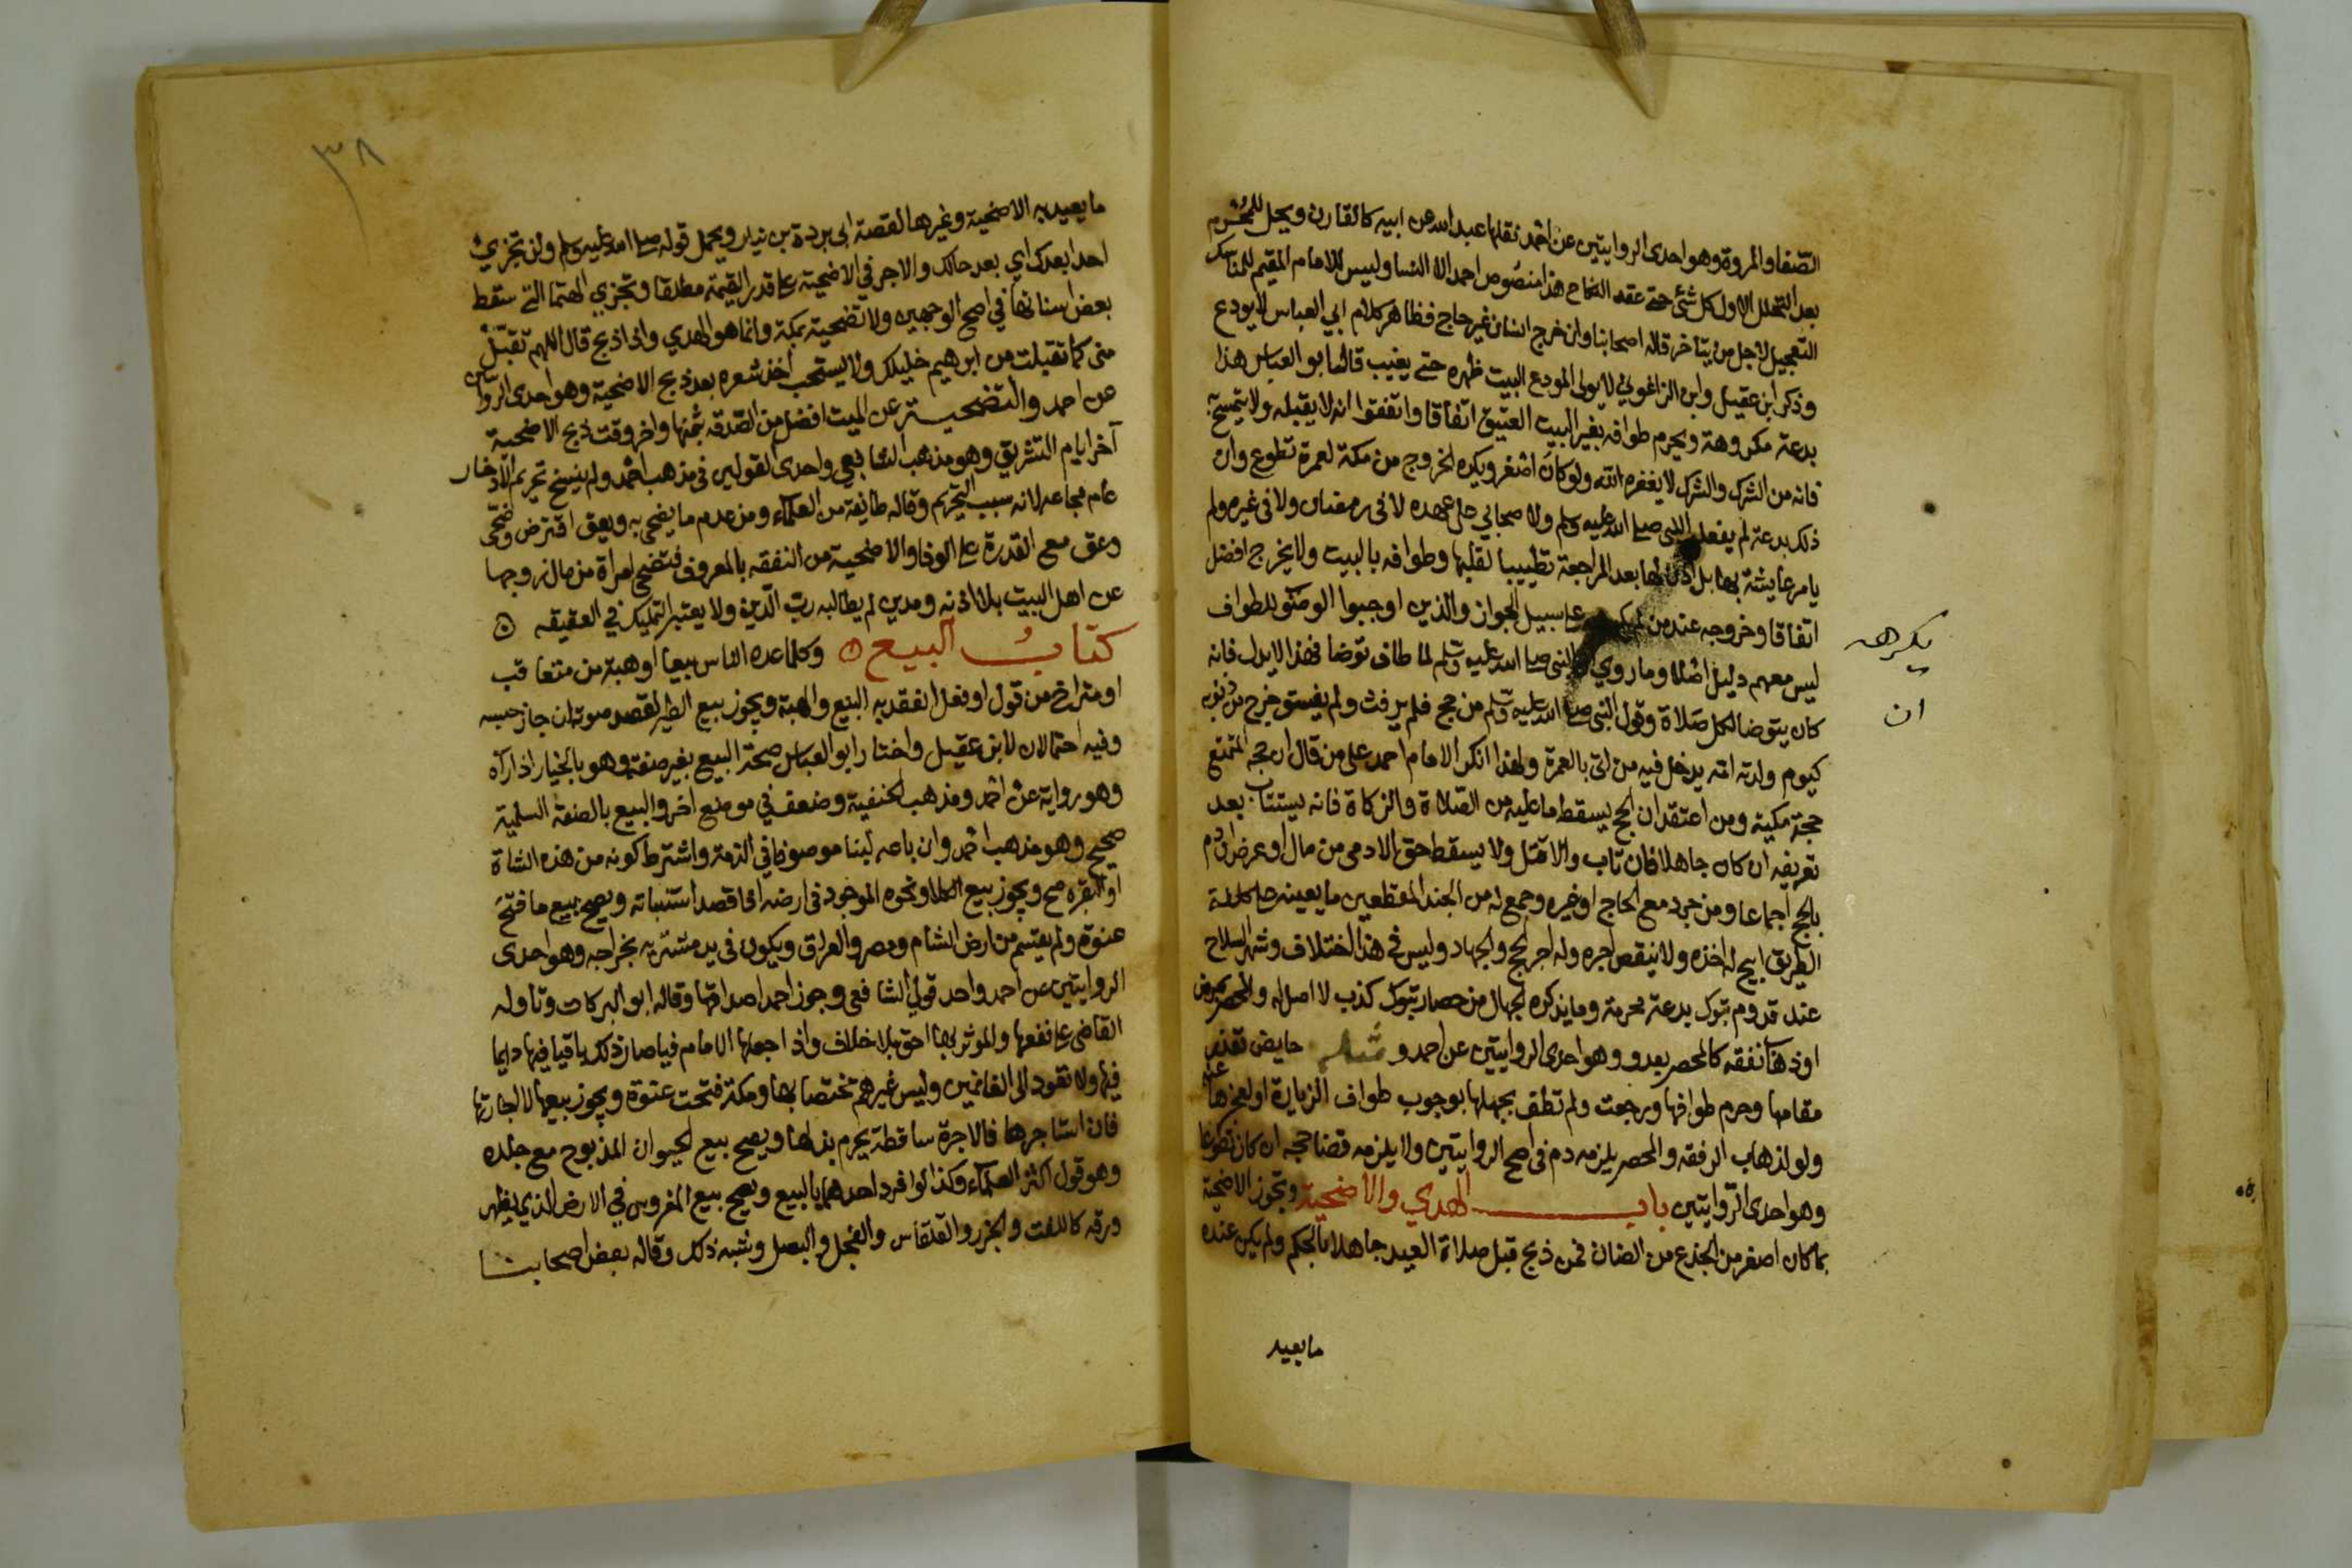 الصفا والمروة وهو احدى الروايتين عن احمد نقلها عبد الله عن ابيه كالقارن ويحل للمحرم
بعد التحلل الاول كل شئ حتى عقد النكاح هذا منصوص احمد الا النسا وليس للامام المقيم للمناسك
التعجيل لاجل من يتاخر قاله اصحابنا وان خرج انسان غير حاج فظاهر كلام ابي العباس لا يودع
وذكر ابن عقيل وابن الزاغوني لا يولى المودع البيت ظهره حتى يغيب قال ابو العباس هذا
بدعة مكروهة ويحرم طوافه بغير البيت العتيق اتفاقا واتفقوا انه لا يقبله ولا يتمسح به
فانه من الشرك والشرك لا يغفره الله ولو كان اصغر ويكره الخروج من مكة لعمرة تطوع وان
ذلك بدعة لم يفعله النبي صلى الله عليه وسلم ولا صحابي على عهده لا في رمضان ولا في غيره ولم
يامر عايشة بها بل اذن لها بعد المراجعة تطييبا لقلبها وطوافه بالبيت ولا يخرج افضل
اتفاقا وخروجه عند من لم يكره على سبيل الجواز والذين اوجبوا الوضو للطواف
ليس معهم دليل اصلا وما روي ان النبي صلى الله عليه وسلم لما طاف توضا فهذا لا يدل فانه
كان يتوضا لكل صلاة وقول النبي صلى الله عليه وسلم من حج فلم يرفث ولم يفسق خرج من ذنوبه
كيوم ولدته امه يدخل فيه من اتى بالعمرة ولهذا انكر الامام احمد على من قال ان حجة المتمتع
حجة مكية ومن اعتقد ان الحج يسقط ما عليه من الصلاة والزكاة فانه يستتاب بعد
تعريفه ان كان جاهلا فان تاب والا قتل ولا يسقط حق الادمى من مال او عرض او دم
بالحج اجماعا ومن جرد مع الحاج او غيره وجمع له من الجند المقطعين ما يعينه على كلفة
الطريق ابيح له اخذه ولا ينقص اجره وله اجر الحج والجهاد وليس في هذا اختلاف وشهر السلاح
عند قدوم تبوك بدعة محرمة وما يذكره الجهال من حصار تبوك كذب لا اصل له والمحصر بمرض
او ذهاب نفقه كالمحصر بعدو وهو احدى الروايتين عن احمد ومثله حايض تعذر
مقامها وحرم طوافها ورجعت ولم تطف بجهلها بوجوب طواف الزيارة او لعجزها عنه
ولو لذهاب الرفقه والمحصر يلزمه دم في اصح الروايتين ولا يلزمه قضا حجه ان كان تطوعا
وهو احدى الروايتين باب الهدي والاضحية وتجوز الاضحية
بما كان اصغر من الجذع من الضان لمن ذبح قبل صلاة العيد جاهلا بالحكم ولم يكن عنده
مايعيد
يكرهه
ان
٣٨
ما يعيد به الاضحية وغيرها لقصة ابي بردة بن نيار ويحمل قوله صلى الله عليه وسلم ولن تجزئ
احدا بعدك اي بعد حالك والاجر في الاضحية على قدر القيمة مطلقا وتجزي الهتما التي سقط
بعض اسنانها في اصح الوجهين ولا تضحية بمكة وانما هو الهدي واذا ذبح قال اللهم تقبل
منى كما تقبلت من ابرهيم خليلك ولا يستحب اخذ شعره بعد ذبح الاضحية وهو احدى الروايتين
عن احمد والتضحية عن الميت افضل من الصدقة بثمنها واخر وقت ذبح الاضحية
آخر ايام التشريق وهو مذهب الشافعي واحدى القولين في مذهب احمد ولم ينسخ تحريم الادخار
عام مجاعه لانه سبب التحريم وقاله طايفة من العلماء ومن عدم ما يضحي به ويعق اقترض وضحى
وعق مع القدرة على الوفا والاضحية من النفقه بالمعروف فتضحي امراة من مال زوجها
عن اهل البيت بلا اذنه ومدين لم يطالبه رب الدين ولا يعتبر التمليك في العقيقه
كتاب البيع وكلما عده الناس بيعا او هبة من متعاقب
او متراخ من قول او فعل انعقد به البيع والهبة ويجوز بيع الطير لقصد صوته ان جاز حبسه
وفيه احتمالان لابن عقيل واختار ابو العباس صحة البيع بغير صفة وهو بالخيار اذا رآه
وهو رواية عن احمد ومذهب الحنفية وضعفه في موضع اخر والبيع بالصفة السلمية
صحيح وهو مذهب احمد وان باعه لبنا موصوفا في الذمة واشترط كونه من هذه الشاة
او البقره صح ويجوز بيع الكلا ونحوه الموجود في ارضه اذا قصد استنباته ويصح بيع ما فتح
عنوة ولم يقسم من ارض الشام ومصر والعراق ويكون في يد مشتريه بخراجه وهو احدى
الروايتين عن احمد واحد قولي الشافعي وجوز احمد اصداقها وقاله ابو البركات وتاوله
القاضي على نفعها والموثر بها احق بلا خلاف واذا جعلها الامام فيا صار ذلك باقيا فيها دايما
فيها ولا تعود الى الغانمين وليس غيرهم مختصا بها ومكة فتحت عنوة ويجوز بيعها لا اجارتها
فان استاجرها فالاجرة ساقطة يحرم بذلها ويصح بيع الحيوان المذبوح مع جلده
وهو قول اكثر العلماء وكذا لو افرد احدهما بالبيع ويصح بيع المغروس في الارض الذي يظهر
ورقه كاللفت والجزر والقلقاس والفجل والبصل وشبه ذلك وقاله بعض اصحابنا